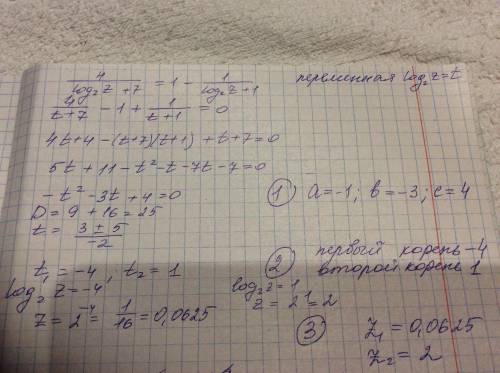 4/(log₂z + 7) = 1 − 1/(log₂z + 1)    переменная log₂z = t
4/(t+7) − 1 + 1/(t+1) = 0
4t+4 − (t+7)(t+1) + t+7 = 0
5t + 11 − t² − t − 7t − 7 = 0
−t² − 3t + 4 = 0    ① a = −1; b = −3; c = 4
D = 9 + 16 = 25
t = (3 ± 5)/−2
t₁ = −4, t₂ = 1    ② первый корень −4
второй корень 1
log₂z = −4    log₂z = 1
z = 2⁻⁴ = 1/16 = 0,0625    z = 2¹ = 2
③ z₁ = 0,0625
z₂ = 2